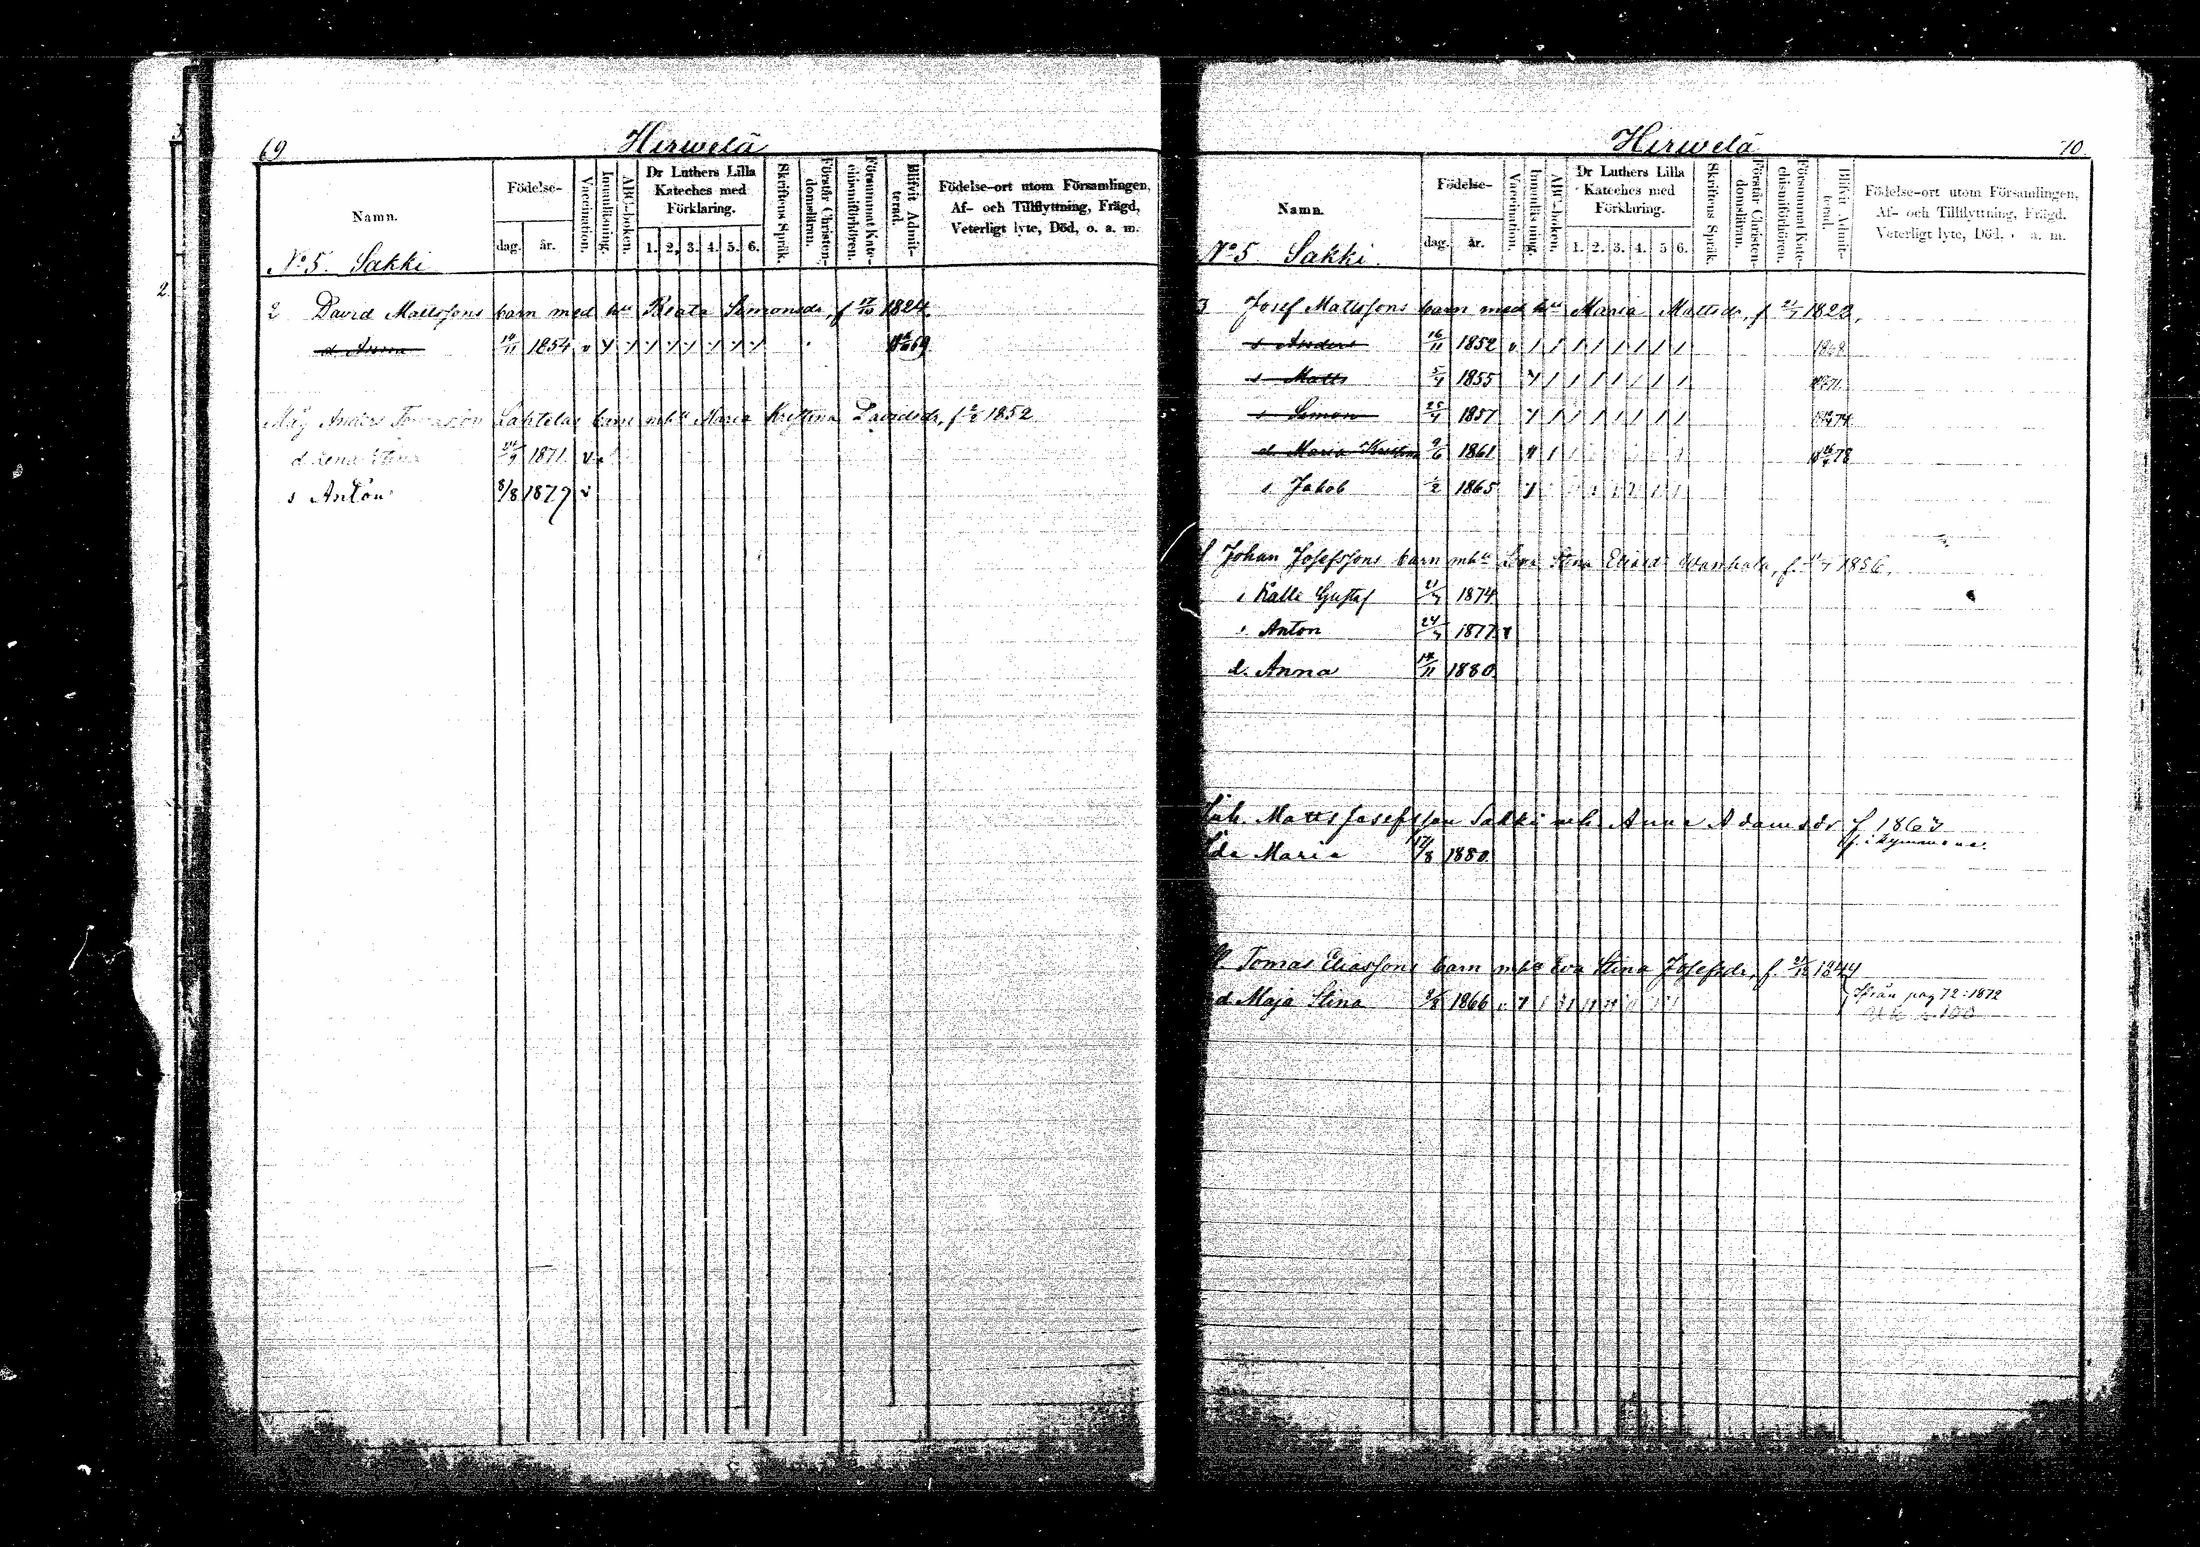 69
Hirwelä
Namn.
Födelse-
dag. år.
Vaccination.
Innanläsning.
ABC-boken.
Dr Luthers Lilla Kateches med Förklaring.
1. 2. 3. 4. 5. 6.
Skriftens Språk.
Förstår Christendomsläran.
Försummat Katechismiförhören.
Blifvit Admitterad.
Födelse-ort utom Församlingen, Af- och Tillflyttning, Frägd, Veterligt lyte, Död, o. a. m.
No 5. Sakki
2.
2 David Matssons barn med hu Beata Simonsdr, f 17/10 1824.
d Anna 1854 69
Måg Anders Lahtelas barn mhu Maria Kristina Davidsdr, f 1852
d Lena Stina 1871 v
s Anton 8/8 1877 v
Hirwelä
70.
Namn.
Födelse-
dag. år.
Vaccination.
Innanläsning.
ABC-boken.
Dr Luthers Lilla Kateches med Förklaring.
1. 2. 3. 4. 5 6.
Skriftens Språk.
Förstår Christendomsläran.
Försummat Katechismiförhören.
Blifvit Admitterad.
Födelse-ort utom Församlingen, Af- och Tillflyttning, Frägd, Veterligt lyte, Död, a. m.
No 5 Sakki.
3 Josef Matssons barn med hu Maria Mattsdr, f 1823,
s Anders 16/11 1852 v 1868
s Matts 5/4 1855 71
s Simon 25/4 1857 74
d Maria Kristina 9/6 1861 78
s Jakob 1/2 1865
Johan Josefssons barn mhu Stina Wanhala, f. 1856,
s Kalle Gustaf 1874
s. Anton 1877
d. Anna 1880.
Matts Josefsson Sakki mh. Anna Adamsdr f 1863
f. i Kymmene.
Ida Maria 17/8 1880
Tomas Eliassons barn mhu Eva Stina Josefsdr, f. 1844
d Maja Stina 1866 från pag 72: 1872
100